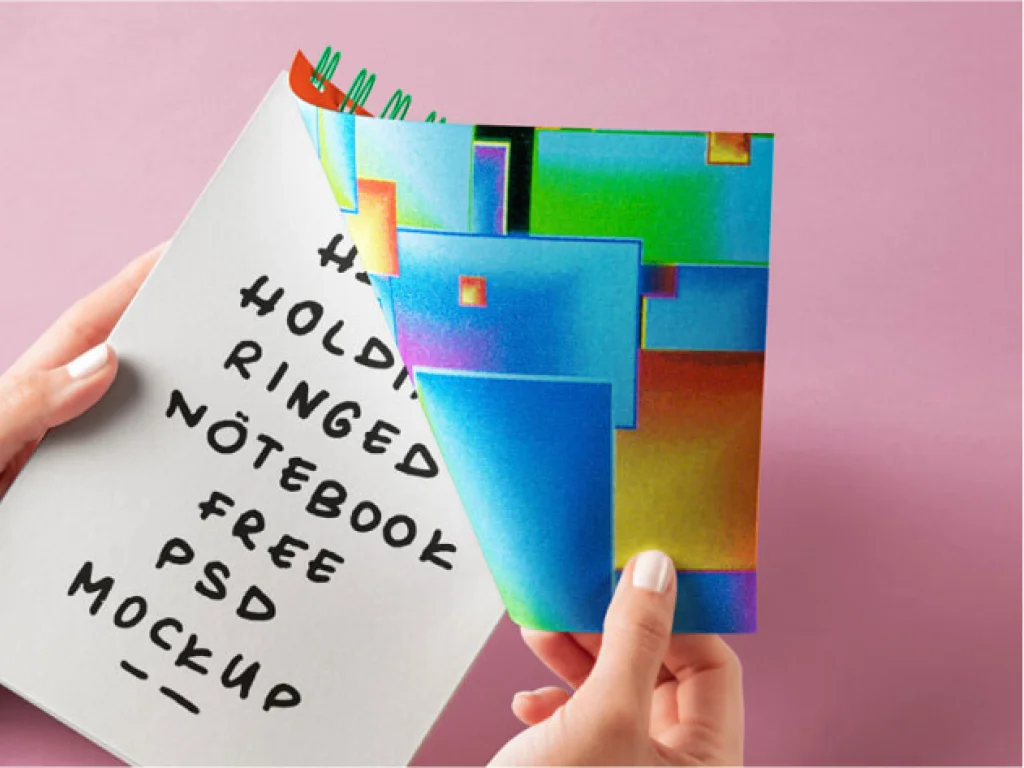 HOLDI
RINGED
NÖTEBOOK
FREE
PSD
MOCKUP